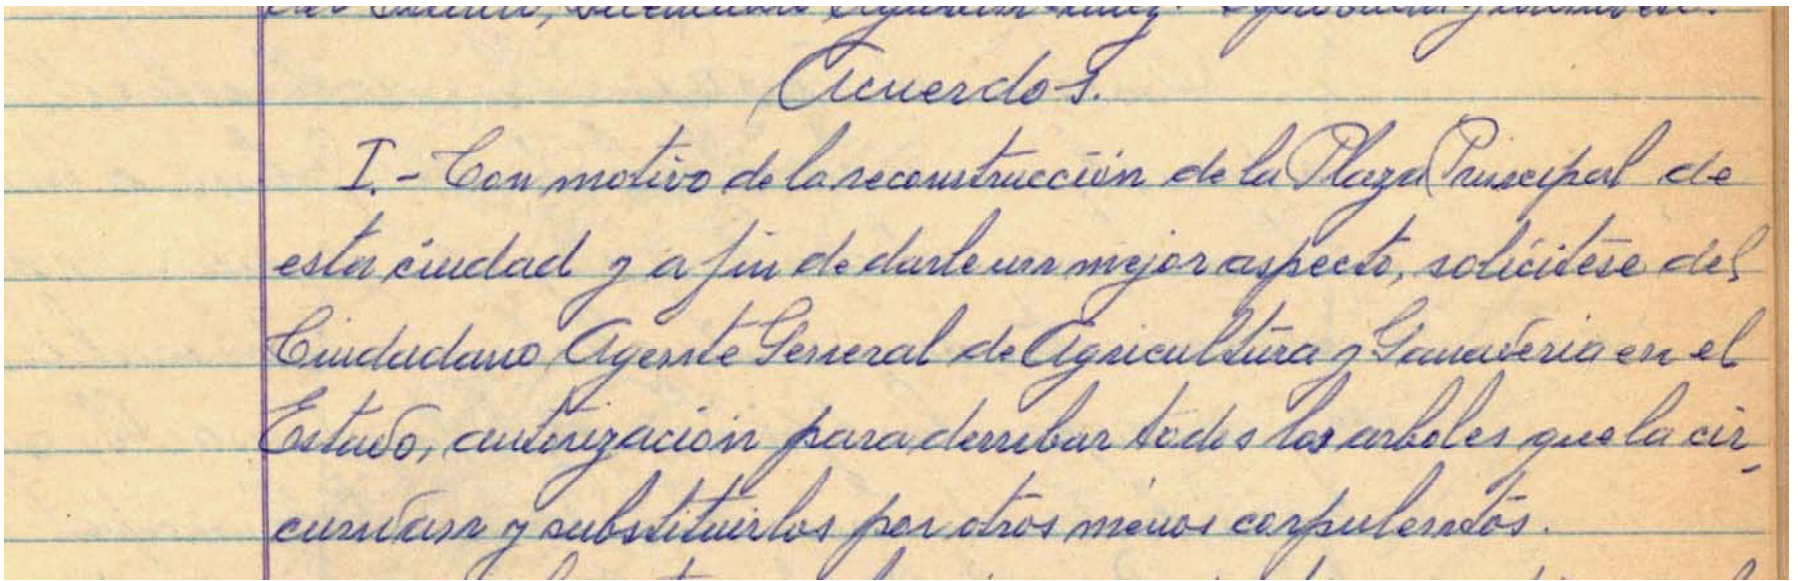 Acuerdos.
I.- Con motivo de la reconstrucción de la Plaza Principal de
esta ciudad y a fin de darle un mejor aspecto, solicítese del
Ciudadano Agente General de Agricultura y Ganadería en el
Estado, autorización para derribar todos los arboles que la cir-
cundan y substituirlos por otros menos corpulentos.